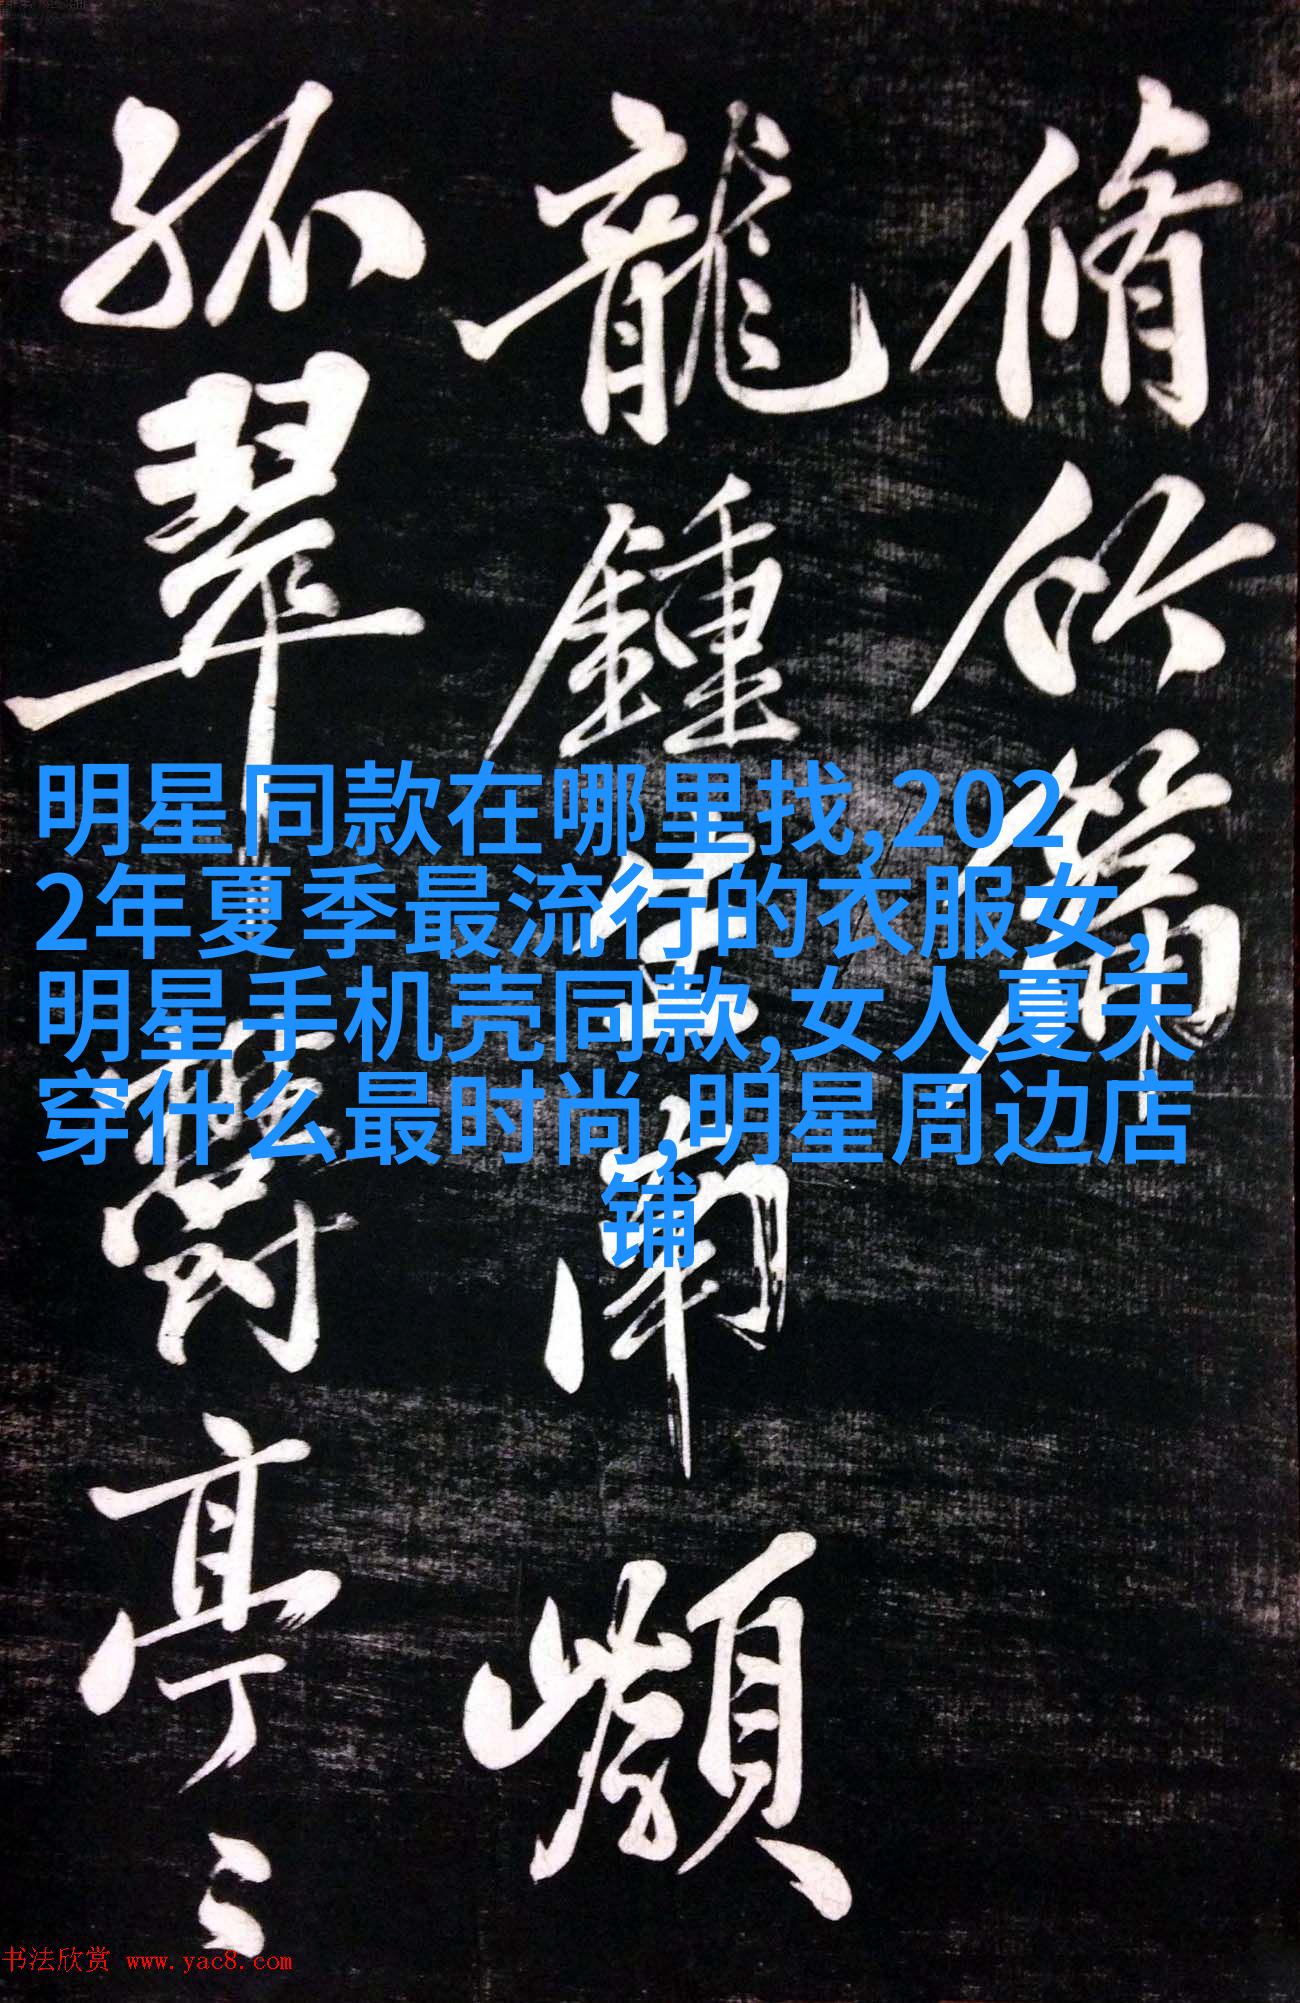 脩竹篇
龍鍾生南
孤翠鬱亭〻
明星同款在哪里找,202
2年夏季最流行的衣服女,
明星手机壳同款,女人夏天
穿什么最时尚,明星周边店
铺
书法欣赏 www.yac8.com